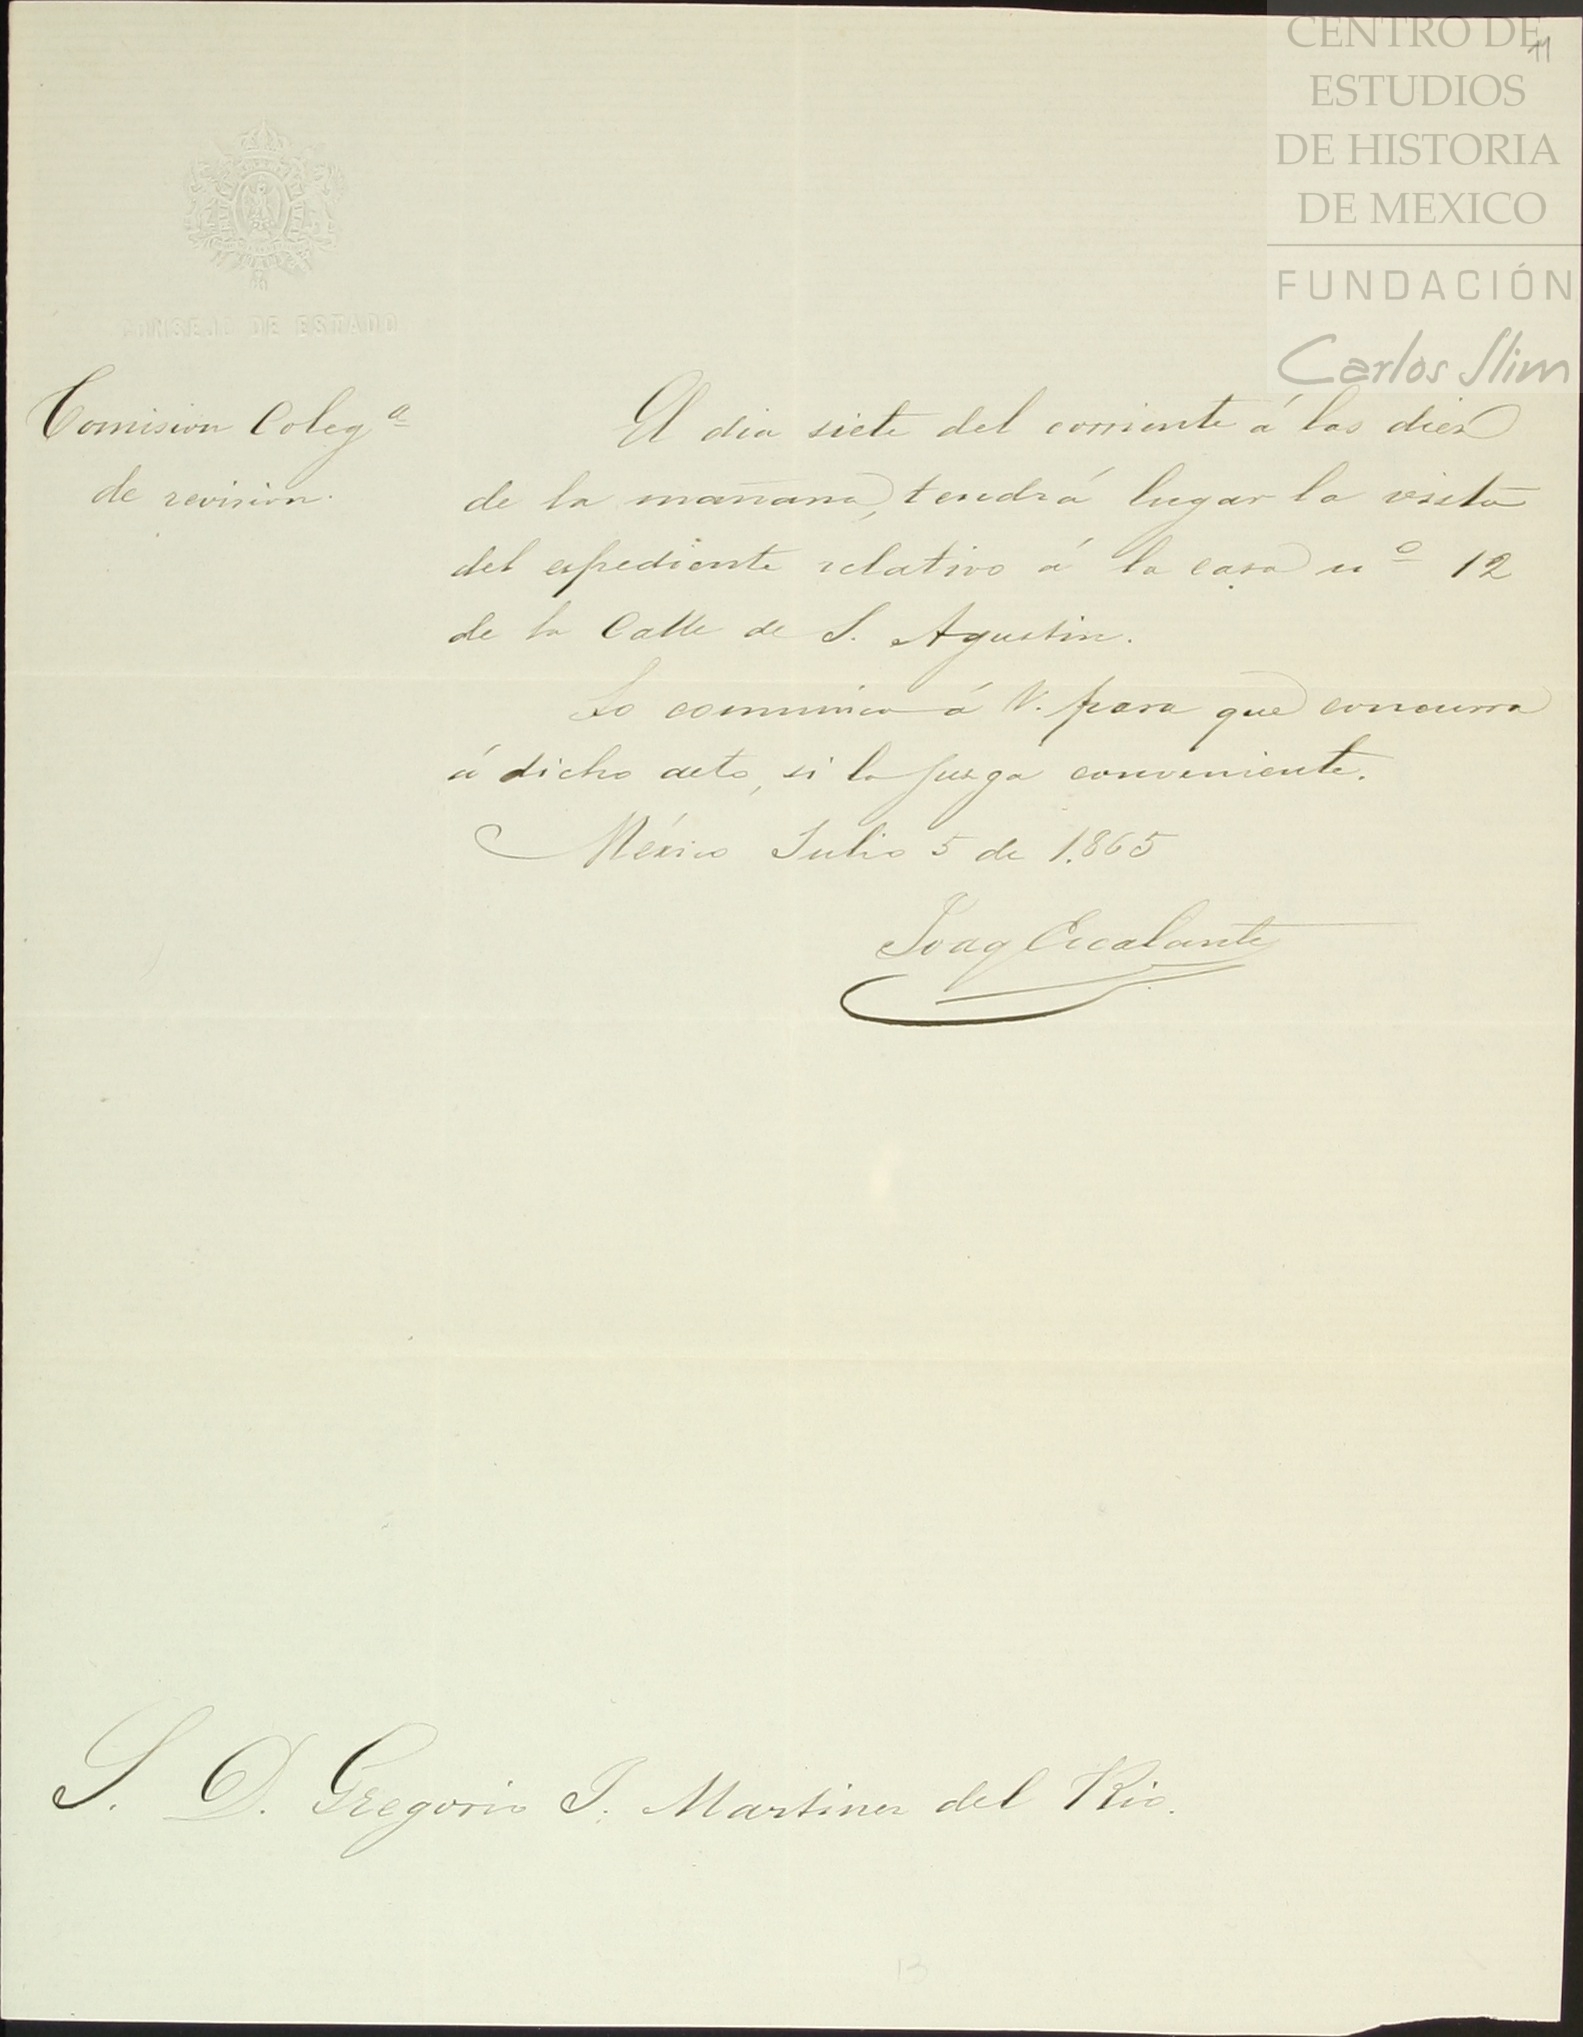 CENTRO DE
ESTUDIOS
DE HISTORIA
DE MEXICO
FUNDACIÓN
Carlos Slim
11
CONSEJO DE ESTADO
Comision Coleg.ª
de revision.
El dia siete del corriente á las diez
de la mañana, tendrá lugar la visita
del espediente relativo á la casa nº 12
de la Calle de S. Agustin.
Lo comunico á V. para que concurra
á dicho acto, si lo juzga conveniente.
México Julio 5 de 1.865
Joaq Escalante
S. D. Gregorio J. Martinez del Rio.
13